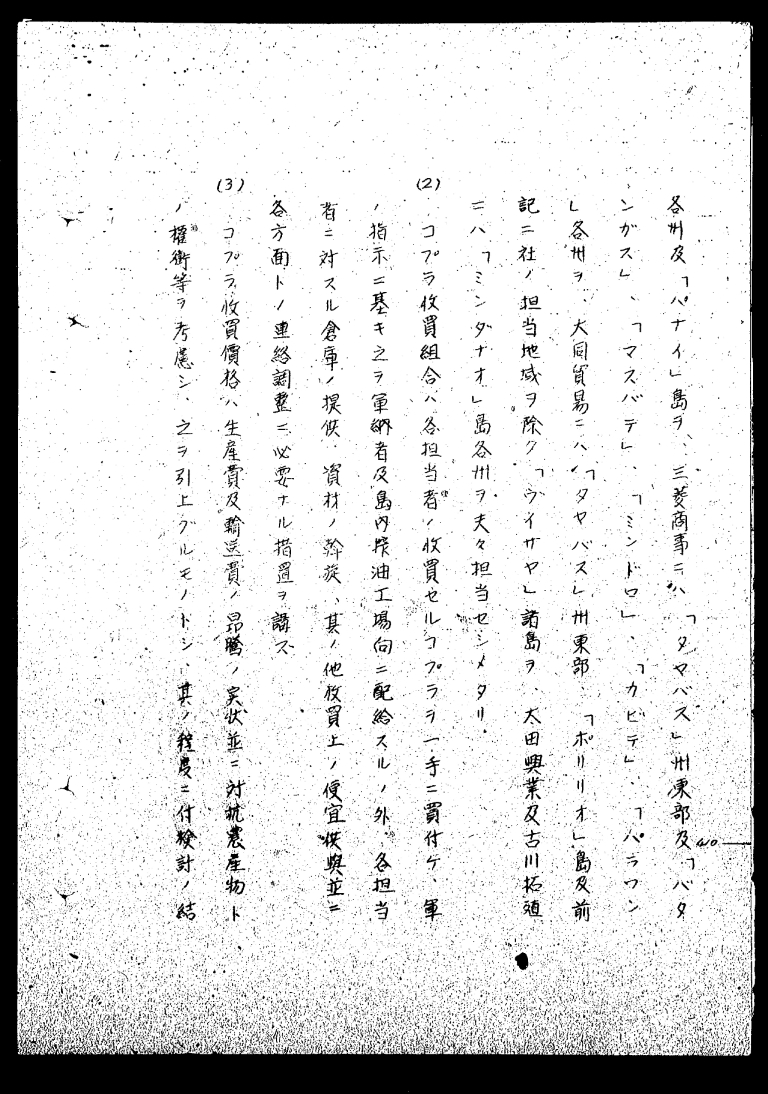 各州及「パナイ」島ヲ、三菱商事ニハ「タヤバス」州東部及「バタ
ンガス」、「マスバテ」、「ミンドロ」、「カビテ」、「パラワン
」各州ヲ、大同貿易ニハ、「タヤバス」州東部、「ポリリオ」島及前
記二社ノ担当地域ヲ除ク「ヴイサヤ」諸島ヲ、太田興業及古川拓殖
ニハ「ミンダナオ」島各州ヲ夫々担当セシメタリ。
(2) コプラ收買組合ハ各担当者ノ收買セルコプラヲ一手ニ買付ケ、軍
ノ指示ニ基キ之ヲ軍納者及島内搾油工場向ニ配給スルノ外、各担当
者ニ対スル倉庫ノ提供、資材ノ斡旋、其ノ他收買上ノ便宜供與並ニ
各方面トノ連絡調整ニ必要ナル措置ヲ講ズ
(3) コプラ收買價格ハ生産費及輸送費ノ昂騰ノ実状並ニ対抗農産物ト
ノ權衡等ヲ考慮シ、之ヲ引上グルモノトシ、其ノ程度ニ付検討ノ結